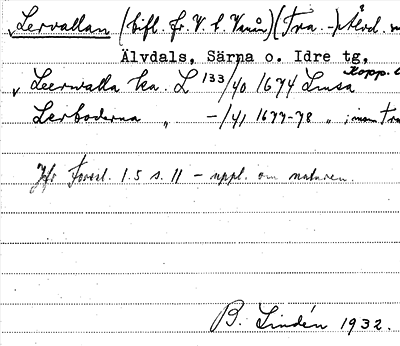 Lervallan (bifl. fr. V. t. Vanån) (Tra. -) Älvd.
Älvdals, Särna o. Idre tg,
Kopp.
Leerwalla ka. L 133/40 1674 Lmsa
Lerboderna " -/41 1677-78 " ; inom Tra
Jfr Forort. 1.5 s. 11 – uppl. om naturen.
B. Lindén 1932.